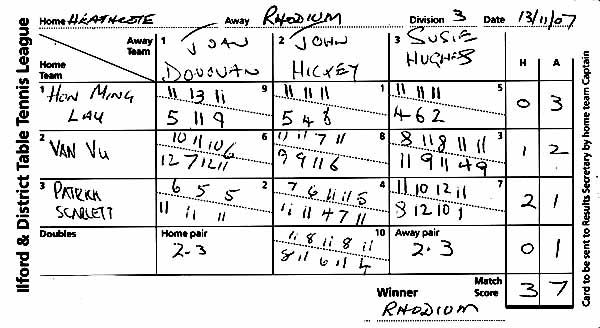 Ilford & District Table Tennis League
Home HEATHCOTE Away RHODIUM Division 3 Date 13/11/07
Away Team
Home Team
1 JOAN DONOVAN
2 JOHN HICKEY
3 SUSIE HUGHES
H A
1 HON MING LAU
11 13 11 9
5 11 9
11 11 11 1
5 4 8
11 11 11 5
4 6 2
0 3
2 VAN VU
10 11 10 6 6
12 7 12 11
11 11 7 11 8
9 9 11 6
8 11 8 11 11 3
11 9 11 4 9
1 2
3 PATRICK SCARLETT
6 5 5 2
11 11 11
7 6 11 11 5 4
11 11 4 7 11
11 10 12 11 7
8 12 10 1
2 1
Doubles
Home pair
2-3
10
11 8 11 8 11
8 11 6 11 4
Away pair
2-3
0 1
Match Score
3 7
Winner
RHODIUM
Card to be sent to Results Secretary by home team Captain